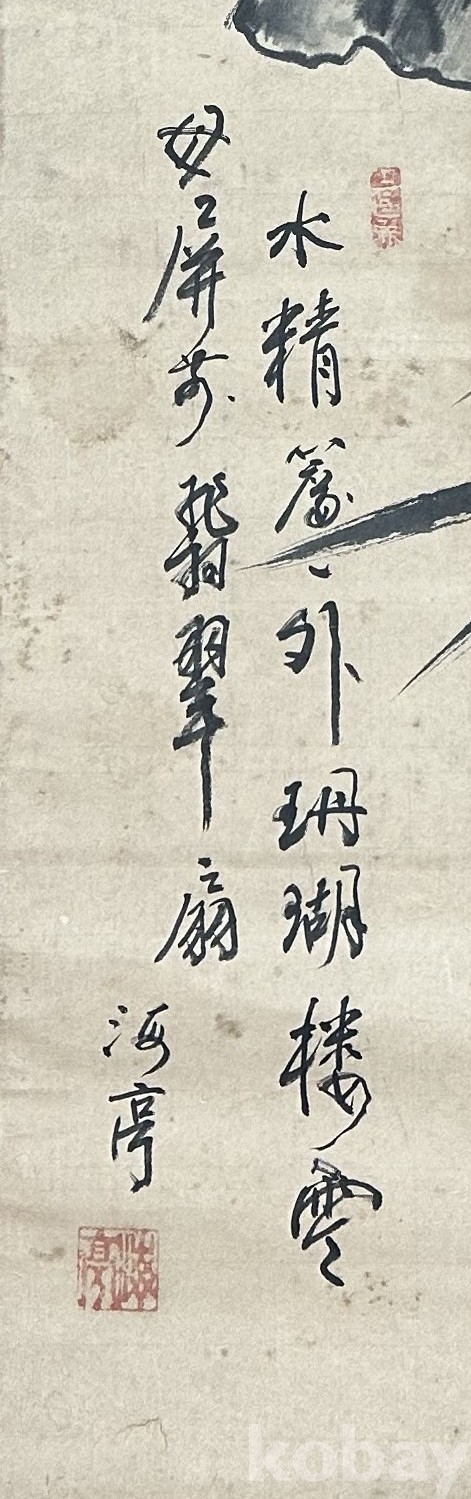 水精簾外珊瑚楼雲
母屏前翡翠扇
海亭
kobay